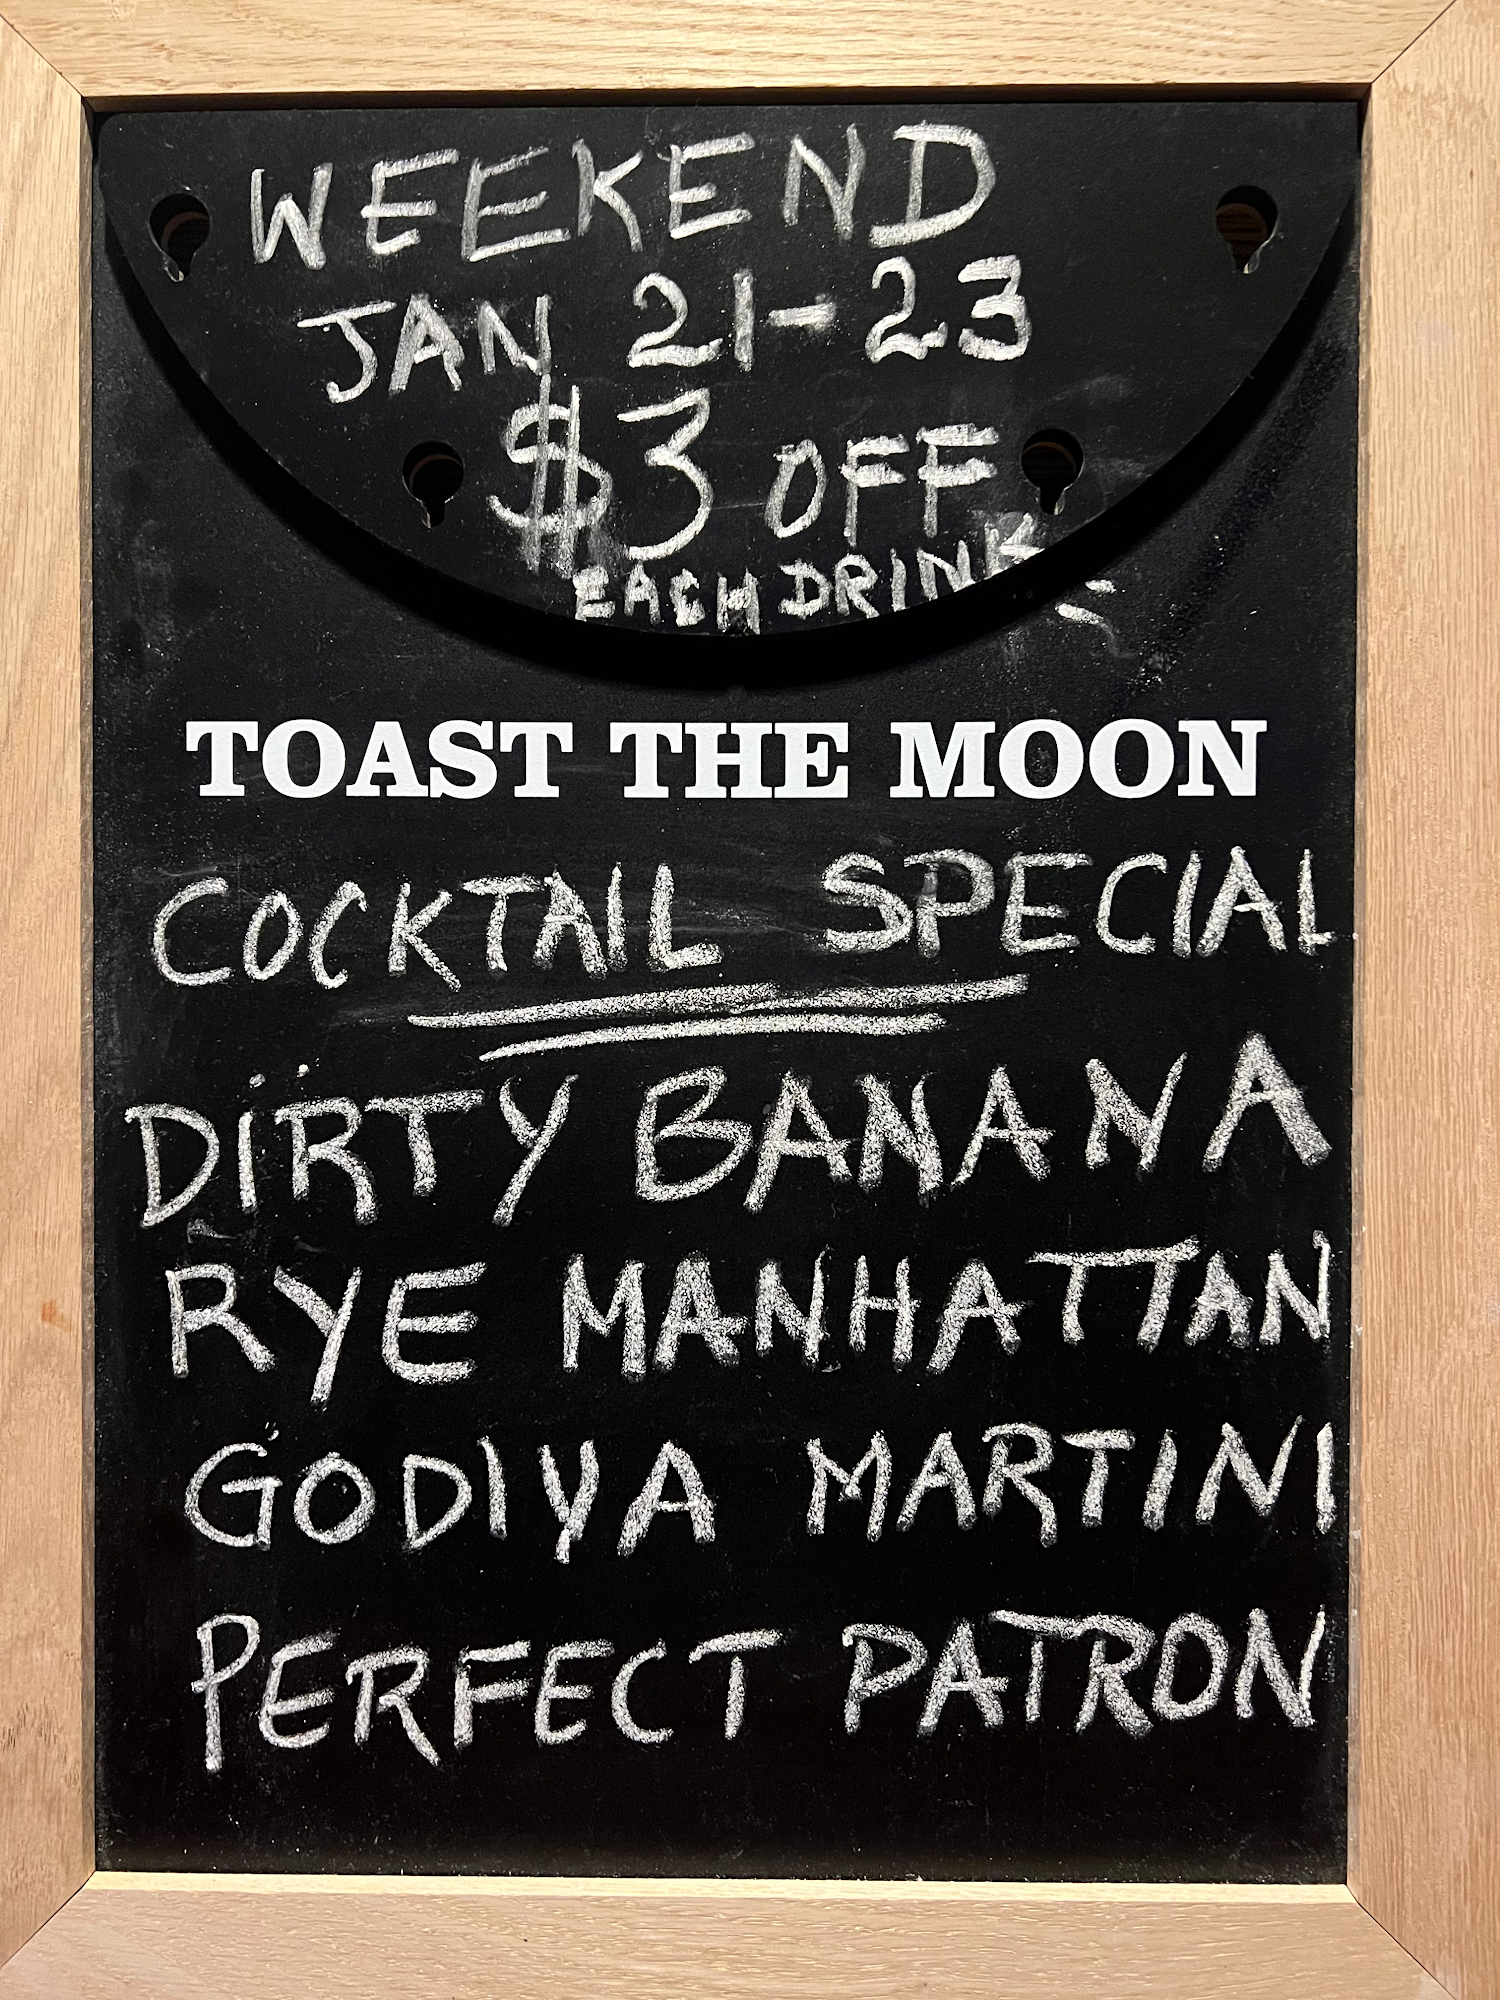 WEEKEND
JAN 21-23
$3 OFF
EACH DRINK
TOAST THE MOON
COCKTAIL SPECIAL
DIRTY BANANA
RYE MANHATTAN
GODIVA MARTINI
PERFECT PATRON